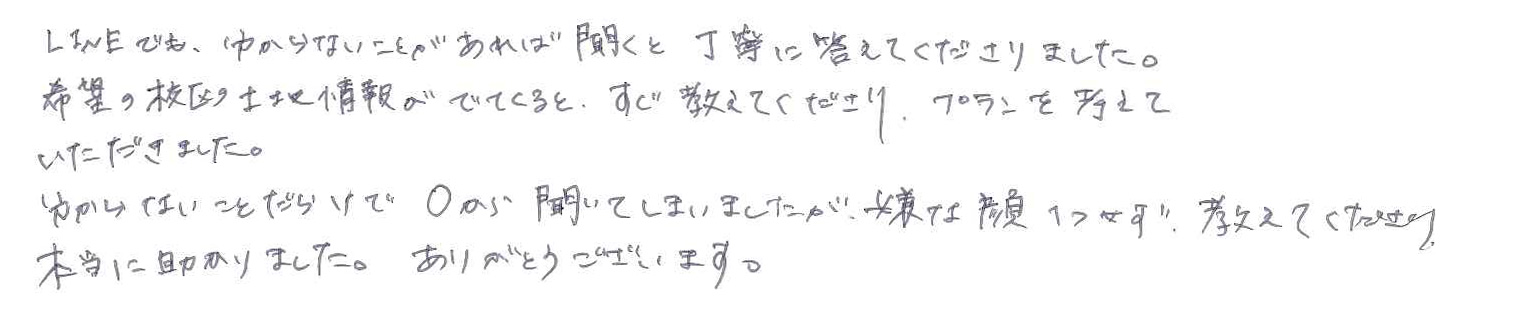 LINEでも、分からないことがあれば聞くと丁寧に答えてくださりました。
希望の校区の土地情報がでてくると、すぐ教えてくださり、プランを考えて
いただきました。
分からないことだらけで0から聞いてしまいましたが、嫌な顔1つせず、教えてくださり、
本当に助かりました。ありがとうございます。